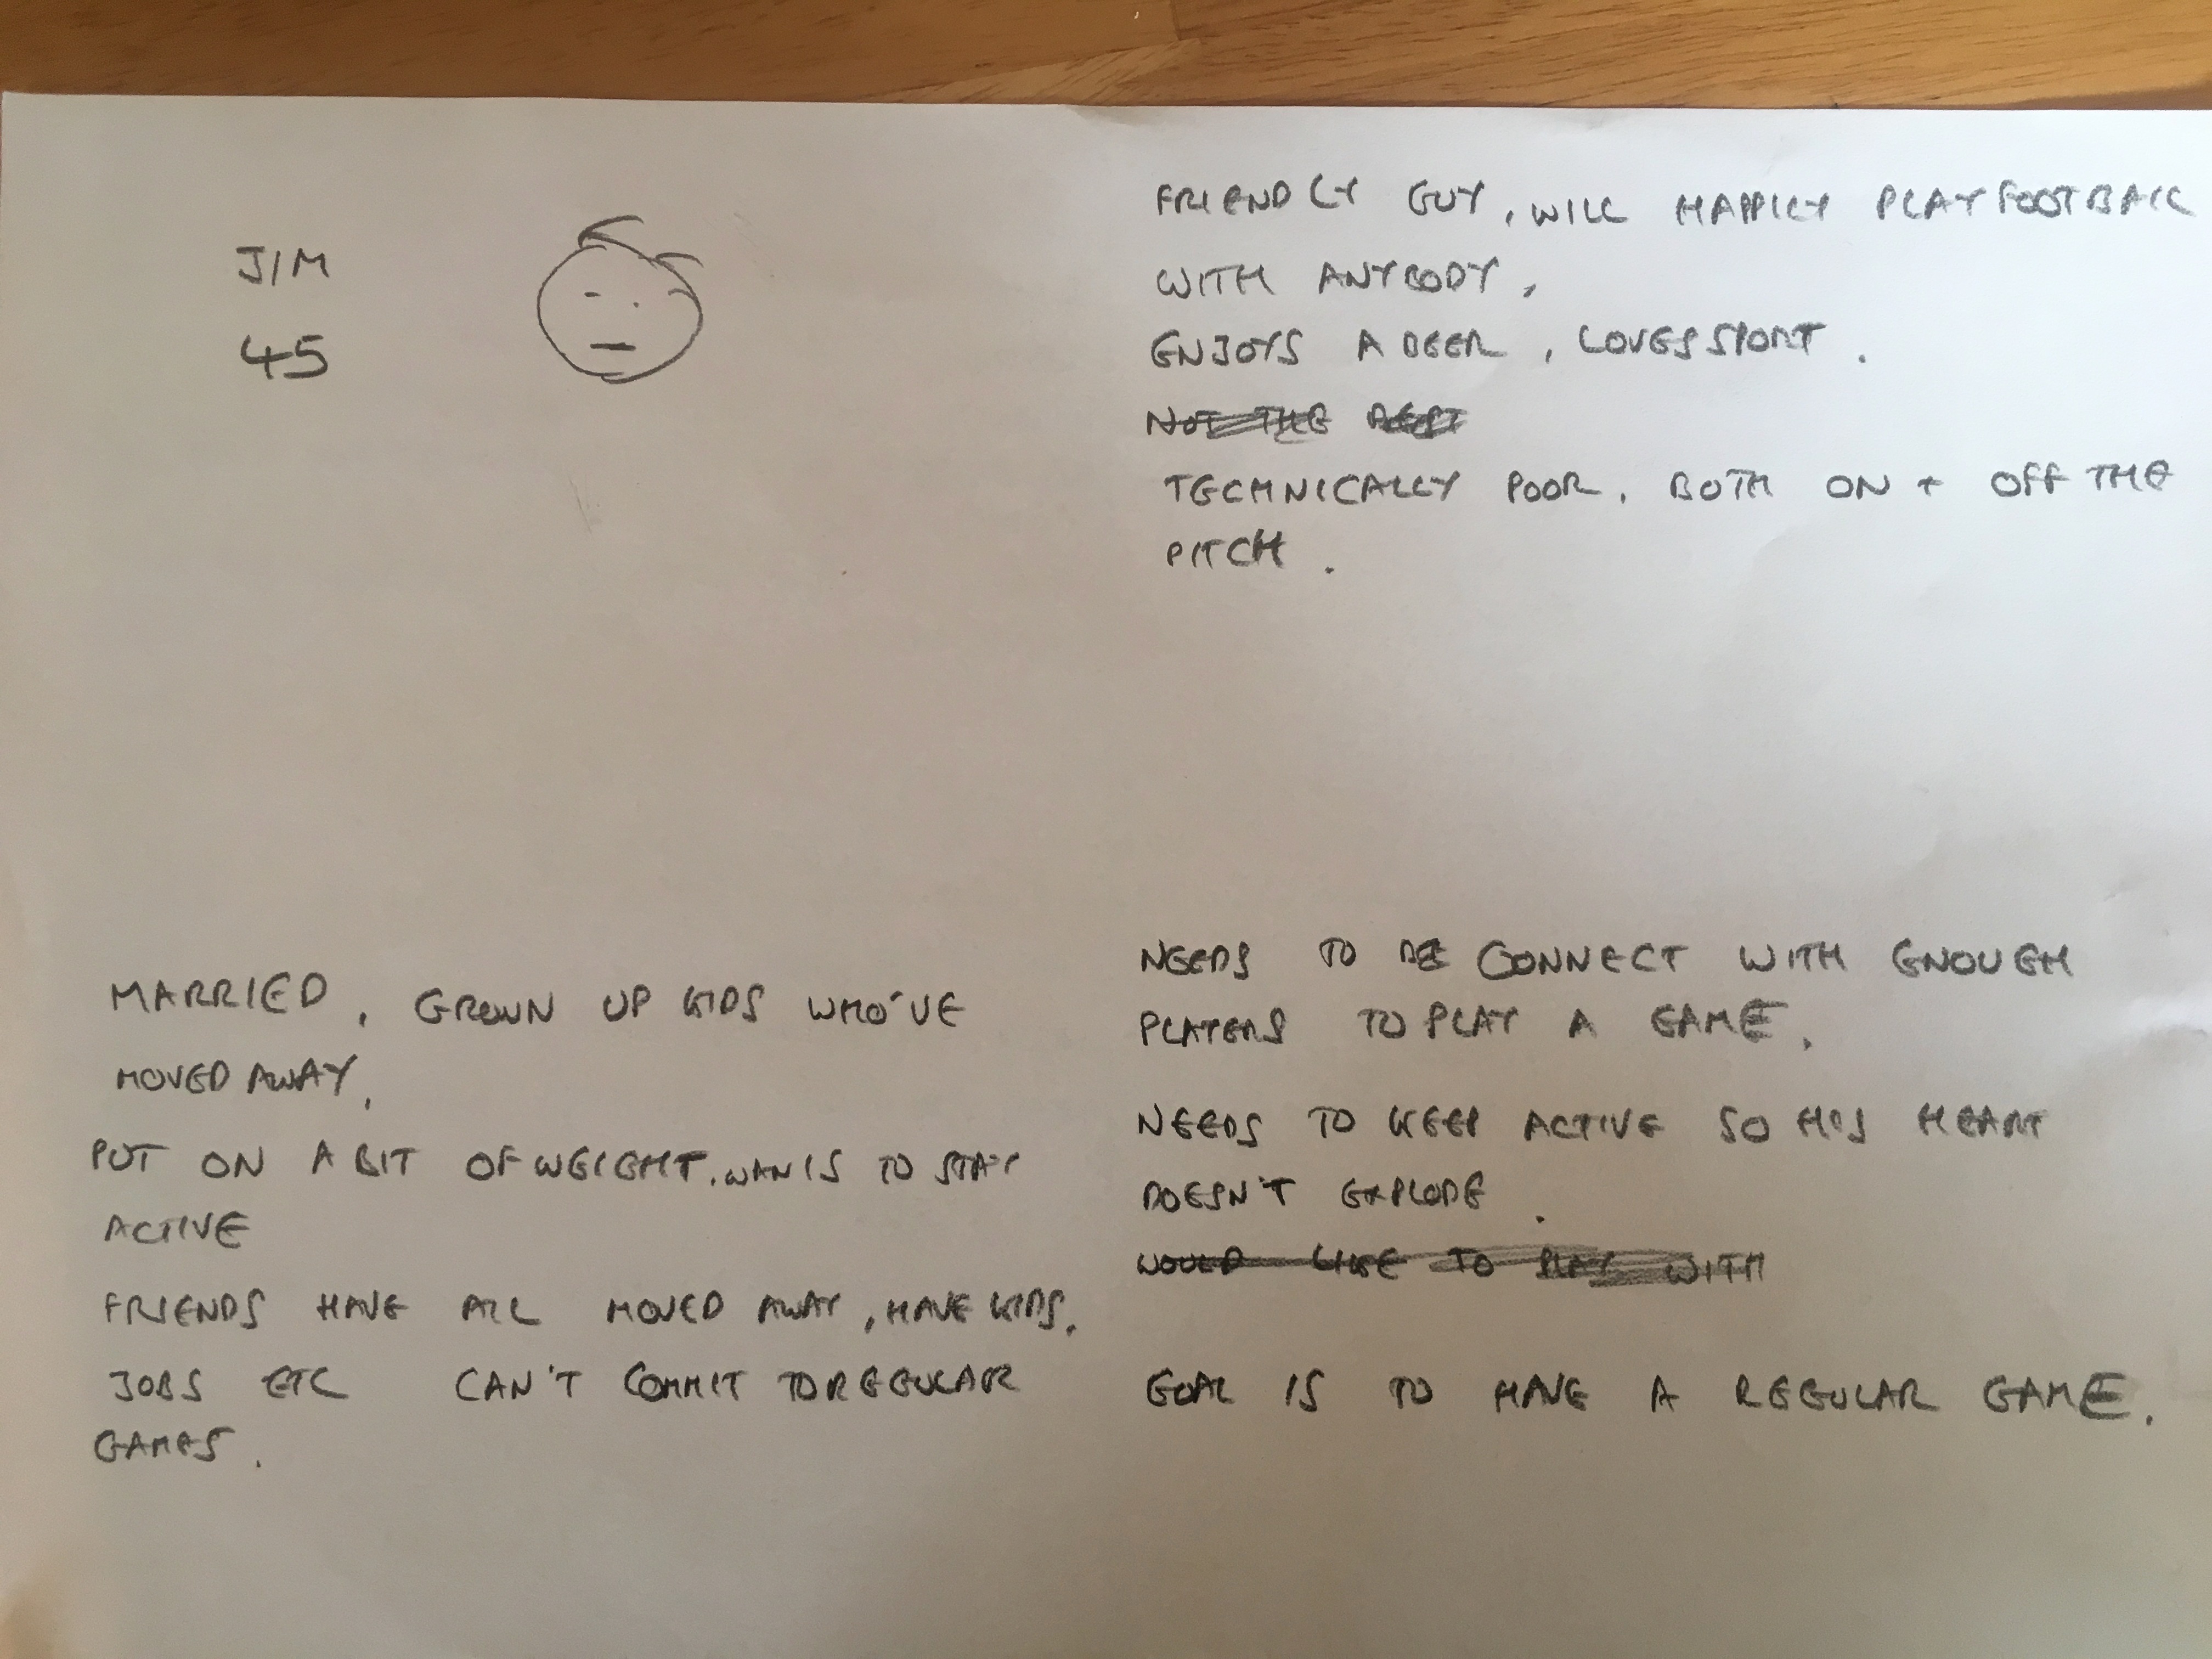 JIM
45
FRIENDLY GUY, WILL HAPPILY PLAY FOOTBALL
WITH ANYBODY,
ENJOYS A BEER, LOVES SPORT.
NOT THE BEST
TECHNICALLY POOR, BOTH ON + OFF THE
PITCH.
MARRIED, GROWN UP KIDS WHO'VE
MOVED AWAY,
PUT ON A BIT OF WEIGHT. WANTS TO STAY
ACTIVE
FRIENDS HAVE ALL MOVED AWAY, HAVE KIDS,
JOBS ETC CAN'T COMMIT TO REGULAR
GAMES.
NEEDS TO BE CONNECT WITH ENOUGH
PLAYERS TO PLAY A GAME.
NEEDS TO KEEP ACTIVE SO HIS HEART
DOESN'T EXPLODE.
WOULD LIKE TO PLAY WITH
GOAL IS TO HAVE A REGULAR GAME.